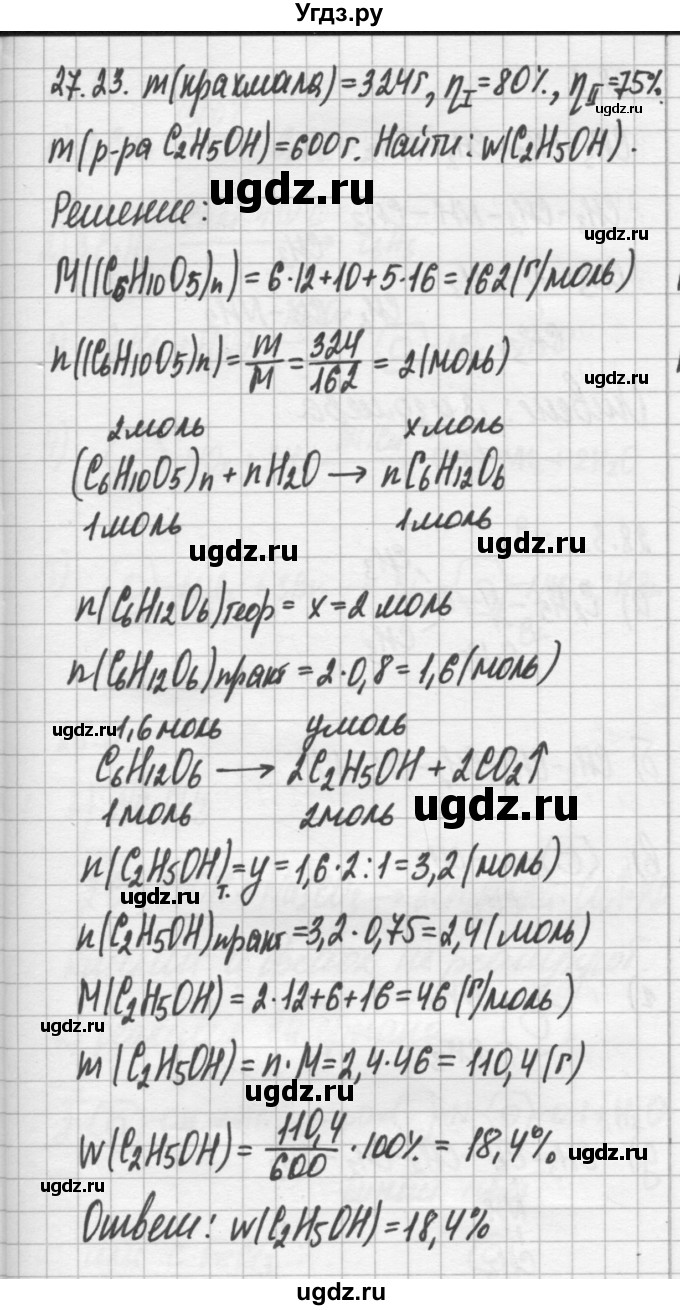 Угдз.ру
27.23. m(крахмала)=324г, η_I=80%, η_II=75%.
m(р-ра C2H5OH)=600г. Найти: w(C2H5OH).
ugdz.ru
Решение:
ugdz.ru
M((C6H10O5)n)=6·12+10+5·16=162(г/моль)
n((C6H10O5)n)=m/M=324/162=2(моль)
ugdz.ru
2моль xмоль
(C6H10O5)n+nH2O→nC6H12O6
1моль 1моль
ugdz.ru ugdz.ru
n(C6H12O6)теор=x=2моль
n(C6H12O6)практ=2·0,8=1,6(моль)
ugdz.ru 1,6моль yмоль
C6H12O6→2C2H5OH+2CO2↑
1моль 2моль ugdz.ru
n(C2H5OH)т.=y=1,6·2:1=3,2(моль)
ugdz.ru
n(C2H5OH)практ=3,2·0,75=2,4(моль)
M(C2H5OH)=2·12+6+16=46(г/моль)
ugdz.ru
m(C2H5OH)=n·M=2,4·46=110,4(г)
ugdz.ru
w(C2H5OH)=110,4/600·100%=18,4%.
ugdz.ru
ugdz.ru
Ответ: w(C2H5OH)=18,4%
ugdz.ru